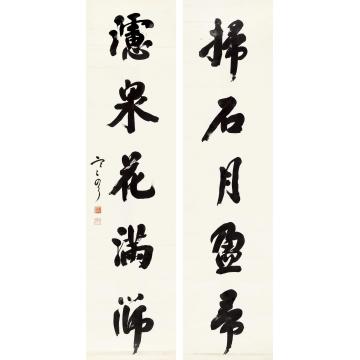 掃石月盈帚
濾泉花滿篩